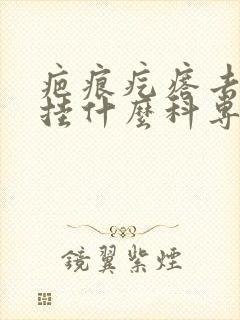 疤痕疙瘩去
挂什麼科專
鏡翼紫煙